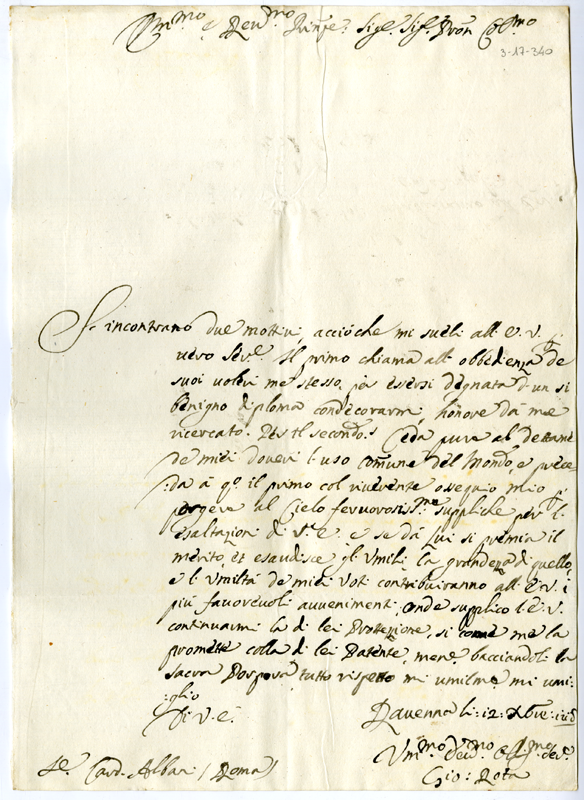 Em.mo e Rev.mo Prin.pe Sig.r Sig.r Pron Col.mo
3-17-340
S'incontrano due mottivi, acciòche mi sueli all'E.V. p
uero Ser.e. Il primo chiama all'obbedienza de
suoi uoleri me stesso, per essersi degnata d'un sì
benigno diploma condecorarmi, honore da me
ricercato. Per il secondo. Ceda pure al dettame
de miei doueri l'uso comune del Mondo, e prece:
:da à q.o il primo col riuerente ossequio mio p
porgere al Cielo feruorosiss.me suppliche per l'
esaltazioni di V.E. e se da lui si premia il
merito, et esaudisce gl'Vmili la grandezza di quello,
e l'Vmiltà de miei Voti contribuiranno all'E.V. i
più fauoreuoli auuenimenti; onde supplico l'E.V.
continuarmi la di lei Protezione, si come me la
promette colla di lei Patente, mentre bacciandoli la
sacra Porpora, tutto rispetto mi umilmo, mi umi:
:glio
Di V.E.
Rauenna li: 12: Xbre:
Vm.mo Deu.mo Obl.mo Ser.
Gio: Rota
Card. Albani (Roma)